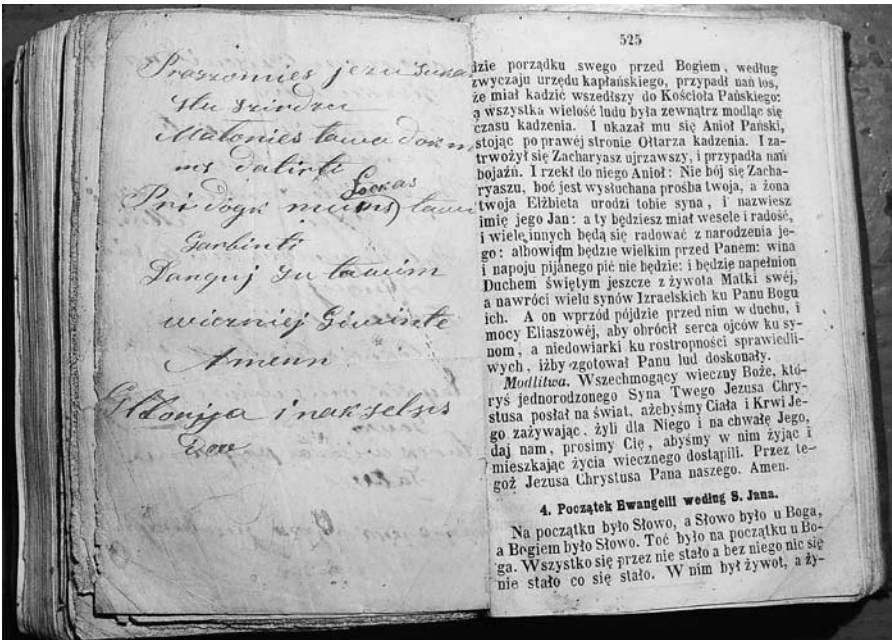 Praszomies jezu suka
stu szirdzu
Małonies tawa dok m
ms datirti
Sockas
Pri dogk mums) tawi
Garbinti
Danguj su tawim
wiczniej Giwinte
Amenn
Gllorija inakselsis
Deo
525
dzie porządku swego przed Bogiem, według
zwyczaju urzędu kapłańskiego, przypadł nań los,
że miał kadzić wszedłszy do Kościoła Pańskiego:
a wszystka wielość ludu była zewnątrz modląc się
czasu kadzenia. I ukazał mu się Anioł Pański,
stojąc po prawéj stronie Ołtarza kadzenia. I za-
trwożył się Zacharyasz ujrzawszy, i przypadła nań
bojaźń. I rzekł do niego Anioł: Nie bój się Zacha-
ryaszu, boć jest wysłuchana prośba twoja, a żona
twoja Elżbieta urodzi tobie syna, i nazwiesz
imię jego Jan: a ty będziesz miał wesele i radość,
i wiele innych będą się radować z narodzenia je-
go: albowiem będzie wielkim przed Panem: wina
i napoju pijanego pić nie będzie: i będzie napełnion
Duchem świętym jeszcze z żywota Matki swéj,
a nawróci wielu synów Izraelskich ku Panu Bogu
ich. A on wprzód pójdzie przed nim w duchu, i
mocy Eliaszowéj, aby obrócił serca ojców ku sy-
nom, a niedowiarki ku rostropności sprawiedli-
wych, iżby zgotował Panu lud doskonały.
Modlitwa. Wszechmogący wieczny Boże, któ-
ryś jednorodzonego Syna Twego Jezusa Chry-
stusa posłał na świat, ażebyśmy Ciała i Krwi Je-
go zażywając, żyli dla Niego i na chwałę Jego,
daj nam, prosimy Cię, abyśmy w nim żyjąc i
mieszkając życia wiecznego dostąpili. Przez te-
goż Jezusa Chrystusa Pana naszego. Amen.
4. Początek Ewangelii według S. Jana.
Na początku było Słowo, a Słowo było u Boga,
a Bogiem było Słowo. Toć było na początku u Bo-
ga. Wszystko się przez nie stało a bez niego nic się
nie stało co się stało. W nim był żywot, a ży-